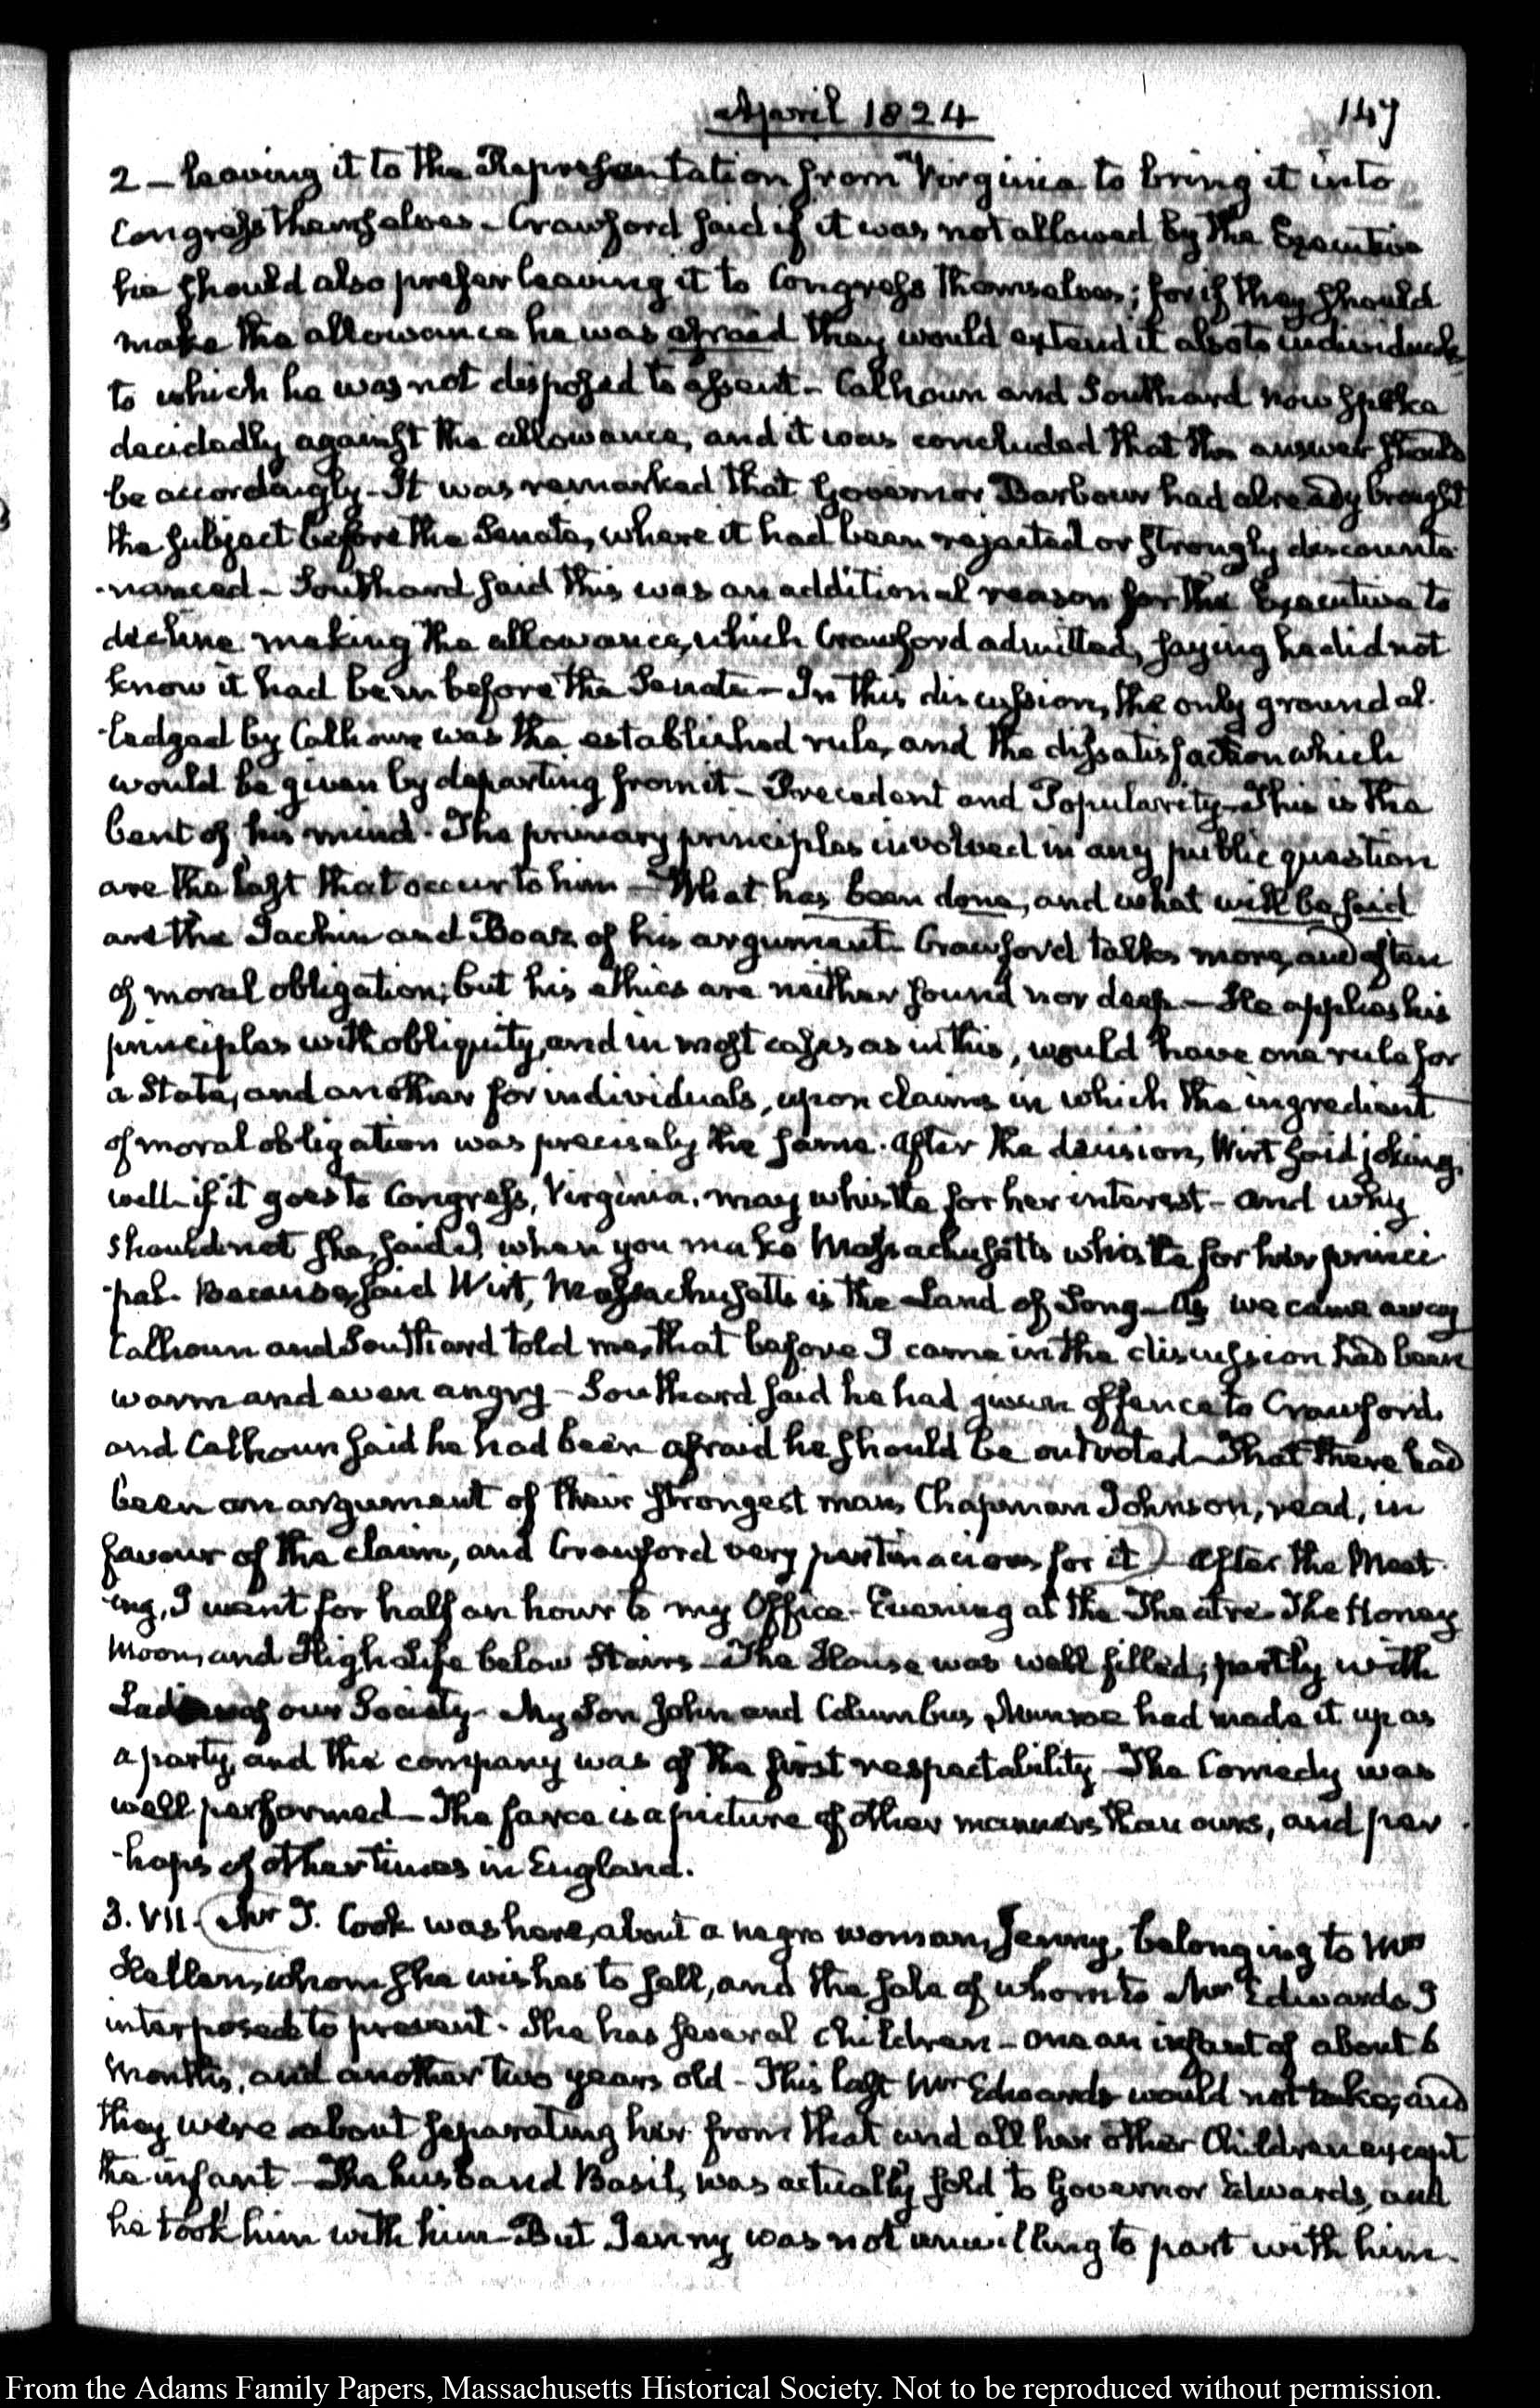 April 1824
147
2 – leaving it to the Representation from Virginia to bring it into
Congress themselves – Crawford said if it was not allowed by the Executive
he should also prefer leaving it to Congress themselves; for if they should
make the allowance he was afraid they would extend it also to individuals,
to which he was not disposed to assent – Calhoun and Southard now spoke
decidedly against the allowance, and it was concluded that the answer should
be accordingly – It was remarked that Governor Barbour had already brought
the subject before the Senate, where it had been rejected or strongly discounte-
-nanced – Southard said this was an additional reason for the Executive to
decline making the allowance, which Crawford admitted, saying he did not
know it had been before the Senate – In this discussion, the only ground al-
-ledged by Calhoun was the established rule, and the dissatisfaction which
would be given by departing from it – Precedent and Popularity – This is the
bent of his mind. The primary principles involved in any public question
are the last that occur to him – What has been done, and what will be said
are the Jachin and Boaz of his argument – Crawford talks more, and often
of moral obligation; but his ethics are neither sound nor deep – He applies his
principles with obliquity, and in most cases as in this, would have one rule for
a State, and another for individuals, upon claims in which the ingredient
of moral obligation was precisely the same. After the decision, Wirt said joking,
well – if it goes to Congress, Virginia may whistle for her interest – And why
should not she, said I, when you make Massachusetts whistle for her princi-
-pal – Because, said Wirt, Massachusetts is the Land of Song – As we came away
Calhoun and Southard told me, that before I came in the discussion had been
warm and even angry – Southard said he had given offence to Crawford,
and Calhoun said he had been afraid he should be outvoted – That there had
been an argument of their strongest man, Chapman Johnson, read, in
favour of the claim, and Crawford very pertinacious for it) – After the Meet-
-ing, I went for half an hour to my Office – Evening at the Theatre – The Honey
Moon, and High Life below Stairs – The House was well filled; partly with
Ladies of our Society – My Son John and Columbus Munroe had made it up as
a party, and the company was of the first respectability – The Comedy was
well performed – The farce is a picture of other manners than ours, and per-
-haps of other times in England.
3. VII. (Mr J. Cook was here, about a negro woman, Jenny, belonging to Mrs
Hellen, whom she wishes to sell, and the sale of whom to Mr Edwards I
interposed to prevent. She has several children – one an infant of about 6
months, and another two years old – This last Mr Edwards would not take; and
they were about separating her from that and all her other Children except
the infant – The husband Basil, was actually sold to Governor Edwards, and
he took him with him – But Jenny was not unwilling to part with him.
From the Adams Family Papers, Massachusetts Historical Society. Not to be reproduced without permission.